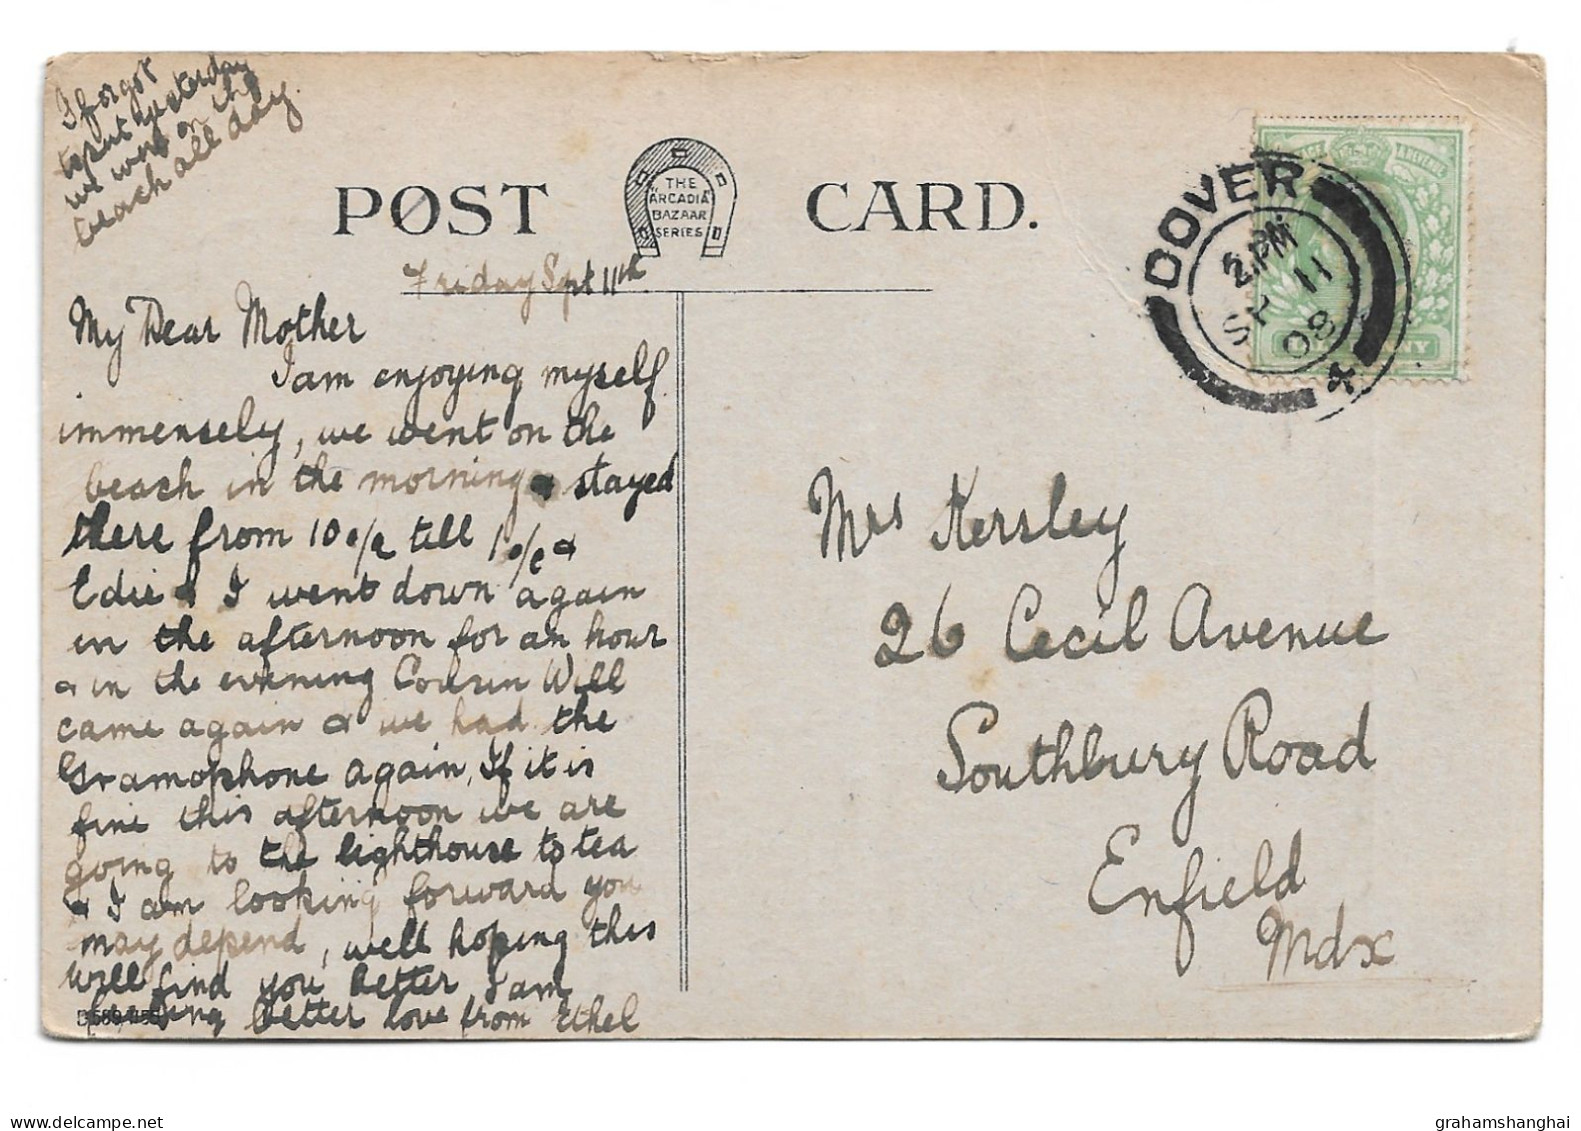 I forgot
to put yesterday
we were on the
beach all day.
POST CARD.
THE
"ARCADIA"
BAZAAR
SERIES
DOVER
2 PM
SP 11
08
Friday Sept 11th
My Dear Mother
I am enjoying myself
immensely, we went on the
beach in the morning & stayed
there from 10 o/c till 1 o/c &
Edie & I went down again
in the afternoon for an hour
& in the evening Cousin Will
came again & we had the
Gramophone again, If it is
fine this afternoon we are
going to the lighthouse to tea
& I am looking forward you
may depend, well hoping this
will find you better I am
feeling better love from Ethel
Mrs Kersley
26 Cecil Avenue
Southbury Road
Enfield
Mdx
grahamshanghai